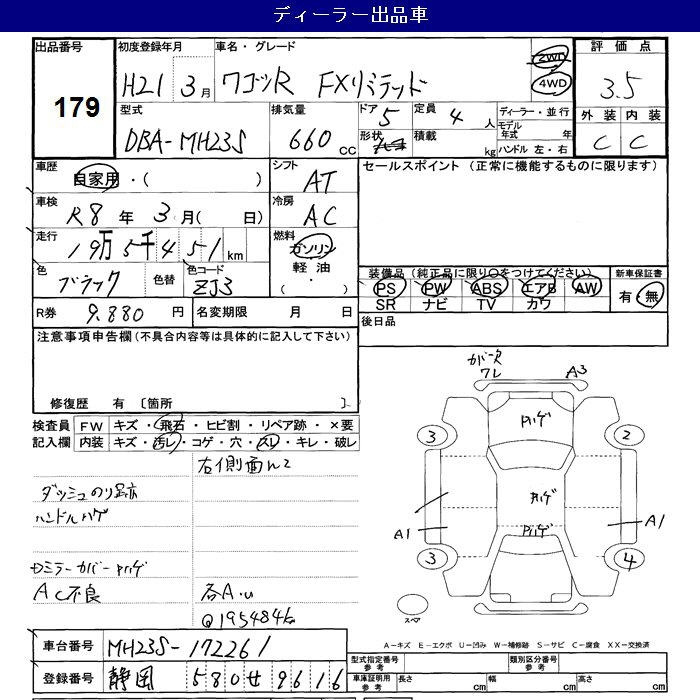 ディーラー出品車
出品番号 初度登録年月 車名・グレード 評価点
179
H21 3月 ワゴンR FXリミテッド 2WD 4WD 3.5
型式 排気量 ドア 定員 ディーラー・並行 外装 内装
DBA-MH23S 660cc 5 4人 モデル年式 年 C C
形状 積載 kg ハンドル 左・右
車歴 シフト セールスポイント (正常に機能するものに限ります)
自家用・( ) AT
車検 冷房
R8年 3月( 日) AC
走行 燃料
19万5千451km ガソリン
色 色替 色コード 軽油
ブラック ZJ3 ( ・ )
装備品 (純正品に限り○をつけてください) 新車保証書
PS PW ABS エアB AW 有・無
SR ナビ TV カワ
R券 9,880円 名変期限 月 日
後日品
注意事項申告欄 (不具合内容等は具体的に記入して下さい)
修復歴 有 〔箇所 〕
検査員 FW キズ・飛石・ヒビ割・リペア跡・×要
記入欄 内装 キズ・汚レ・コゲ・穴・スレ・キレ・破レ
右側面
ダッシュのり跡
ハンドルハゲ
AC不良
Q195484k
カバー欠
ワレ
A3
3
2
A1
A1
3
4
スペア
A-キズ E-エクボ U-凹み W-補修跡 S-サビ C-腐食 XX-交換済
車台番号 MH23S-172261
登録番号 静岡 580 せ 9616
型式指定番号 参考 類別区分番号 参考
車庫証明用 参考 長さ cm 幅 cm 高さ cm